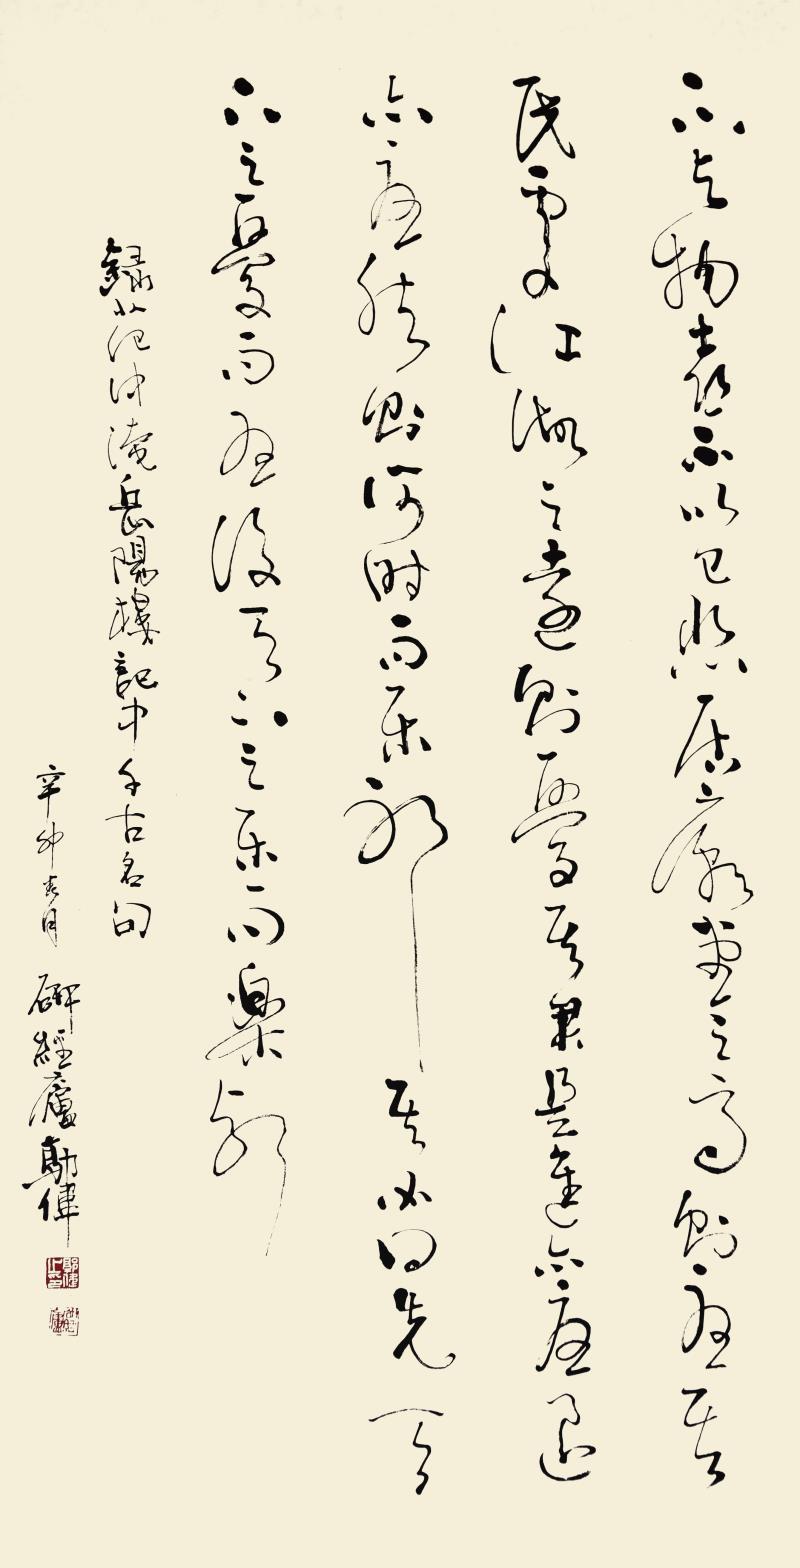 不以物喜不以己悲居廟堂之高則憂其
民處江湖之遠則憂其君是進亦憂退
亦憂然則何時而樂耶其必曰先天
下之憂而憂後天下之樂而樂歟
錄范仲淹岳陽樓記中千古名句
辛卯春月 經廬偉